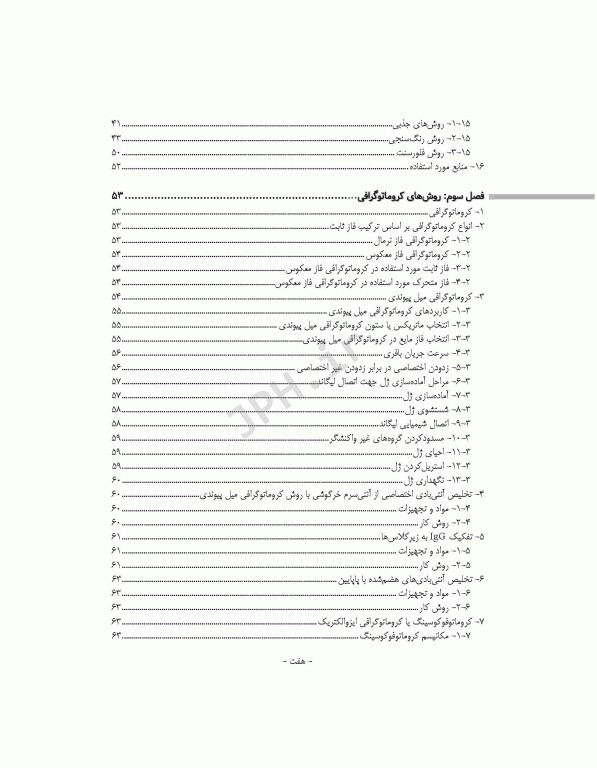 ۱۵-۱- روش‌های جذبی ۴۱
۱۵-۲- روش رنگ‌سنجی ۴۳
۱۵-۳- روش فلورسنت ۵۰
۱۶- منابع مورد استفاده ۵۲
فصل سوم: روش‌های کروماتوگرافی ۵۳
۱- کروماتوگرافی ۵۳
۲- انواع کروماتوگرافی بر اساس ترکیب فاز ثابت ۵۳
۲-۱- کروماتوگرافی فاز نرمال ۵۳
۲-۲- کروماتوگرافی فاز معکوس ۵۴
۲-۳- فاز ثابت مورد استفاده در کروماتوگرافی فاز معکوس ۵۴
۲-۴- فاز متحرک مورد استفاده در کروماتوگرافی فاز معکوس ۵۴
۳- کروماتوگرافی میل پیوندی ۵۴
۳-۱- کاربردهای کروماتوگرافی میل پیوندی ۵۵
۳-۲- انتخاب ماتریکس یا ستون کروماتوگرافی میل پیوندی ۵۵
۳-۳- انتخاب فاز مایع در کروماتوگرافی میل پیوندی ۵۵
۳-۴- سرعت جریان بافری ۵۶
۳-۵- زدودن اختصاصی در برابر زدودن غیر اختصاصی ۵۶
۳-۶- مراحل آماده‌سازی ژل جهت اتصال لیگاند ۵۷
۳-۷- آماده‌سازی ژل ۵۷
۳-۸- شستشوی ژل ۵۸
۳-۹- اتصال شیمیایی لیگاند ۵۸
۳-۱۰- مسدودکردن گروه‌های غیر واکنشگر ۵۹
۳-۱۱- احیای ژل ۵۹
۳-۱۲- استریل‌کردن ژل ۵۹
۳-۱۳- نگهداری ژل ۶۰
۴- تخلیص آنتی‌بادی اختصاصی از آنتی‌سرم خرگوشی با روش کروماتوگرافی میل پیوندی ۶۰
۴-۱- مواد و تجهیزات ۶۰
۴-۲- روش کار ۶۰
۵- تفکیک IgG به زیرکلاس‌ها ۶۱
۵-۱- مواد و تجهیزات ۶۱
۵-۲- روش کار ۶۱
۶- تخلیص آنتی‌بادی‌های هضم‌شده با پاپایین ۶۳
۶-۱- مواد و تجهیزات ۶۳
۶-۲- روش کار ۶۳
۷- کروماتوفوکوسینگ یا کروماتوگرافی ایزوالکتریک ۶۳
۷-۱- مکانیسم کروماتوفوکوسینگ ۶۳
- هفت -
JPH.ir